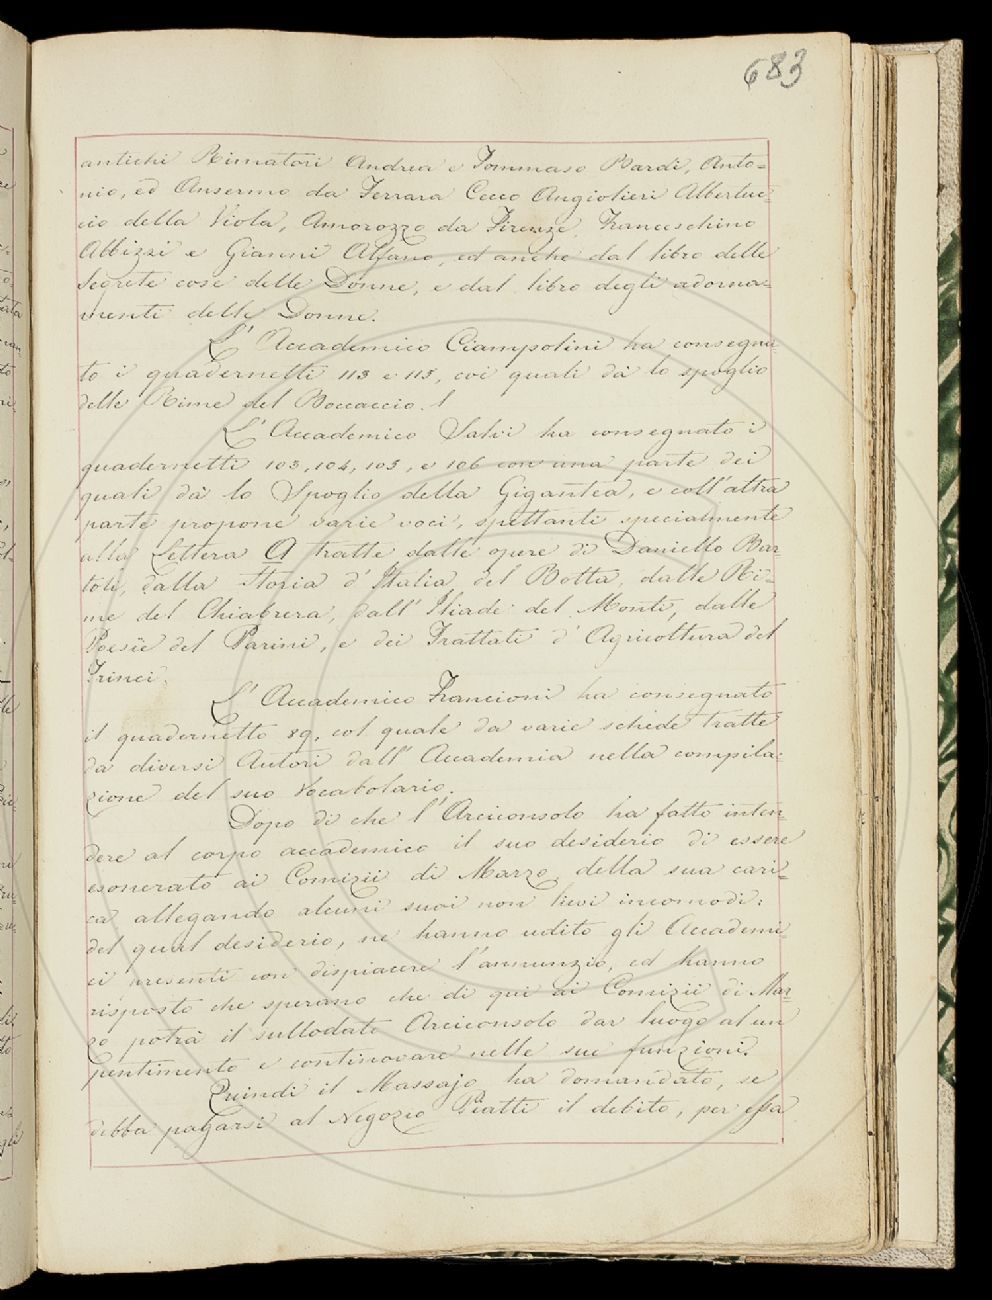 683
antichi Rimatori Andrea e Tommaso Bardi, Anto=
nio, ed Anselmo da Ferrara Cecco Angiolieri Albertuc=
cio della Viola, Amorozzo da Firenze, Franceschino
Albizzi e Gianni Alfano, ed anche dal libro delle
segrete cose delle Donne, e dal libro degli adorna=
menti delle Donne.
L'Accademico Ciampolini ha consegna=
to i quadernetti 113 e 115, coi quali dà lo spoglio
delle Rime del Boccaccio.
L'Accademico Salvi ha consegnato i
quadernetti 103, 104, 105, e 106 con una parte dei
quali dà lo Spoglio della Gigantea, e coll'altra
parte propone varie voci, spettanti specialmente
alla Lettera A tratte dalle opere di Daniello Bar=
toli, dalla Storia d'Italia del Botta, dalle Ri=
me del Chiabrera, dall'Iliade del Monti, dalle
Poesie del Parini, e dei Trattati d'Agricoltura del
Trinci.
L'Accademico Francioni ha consegnato
il quadernetto 89, col quale da varie schede tratte
da diversi Autori dall'Accademia nella compila=
zione del suo Vocabolario.
Dopo di che l'Arciconsolo ha fatto inten=
dere al corpo accademico il suo desiderio di essere
esonerato ai Comizii di Marzo della sua cari=
ca allegando alcuni suoi non lievi incomodi:
del qual desiderio, ne hanno udito gli Accademi=
ci presenti con dispiacere l'annunzio, ed hanno
risposto che sperano che di qui ai Comizii di Mar=
zo potrà il sullodato Arciconsolo dar luogo al un
pentimento e continovare nelle sue funzioni.
Quindi il Massajo ha domandato, se
debba pagarsi al Negozio Piatti il debito, per essa